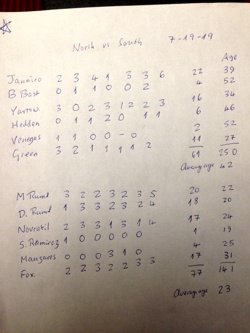 North vs South 7-19-19
Age
Janairo 2 3 4 1 3 3 6 22 39
B Best 0 1 1 0 0 2 4 52
Yarrow 3 0 2 3 1 2 2 3 16 34
Hedden 0 1 1 2 0 1 1 6 46
Venegas 1 1 0 0 - 0 2 52
Green 3 2 1 1 1 1 2 11 27
61 250
Average 42
M Rund 3 2 2 3 2 3 5 20 22
D. Rund 1 3 3 2 3 2 4 18 20
Novratil 2 3 3 1 3 1 4 17 24
S. Ramirez 1 0 0 0 0 0 1 19
Manzanes 0 0 0 3 1 0 4 25
Fox 2 2 3 2 2 3 3 17 31
77 141
Average 23